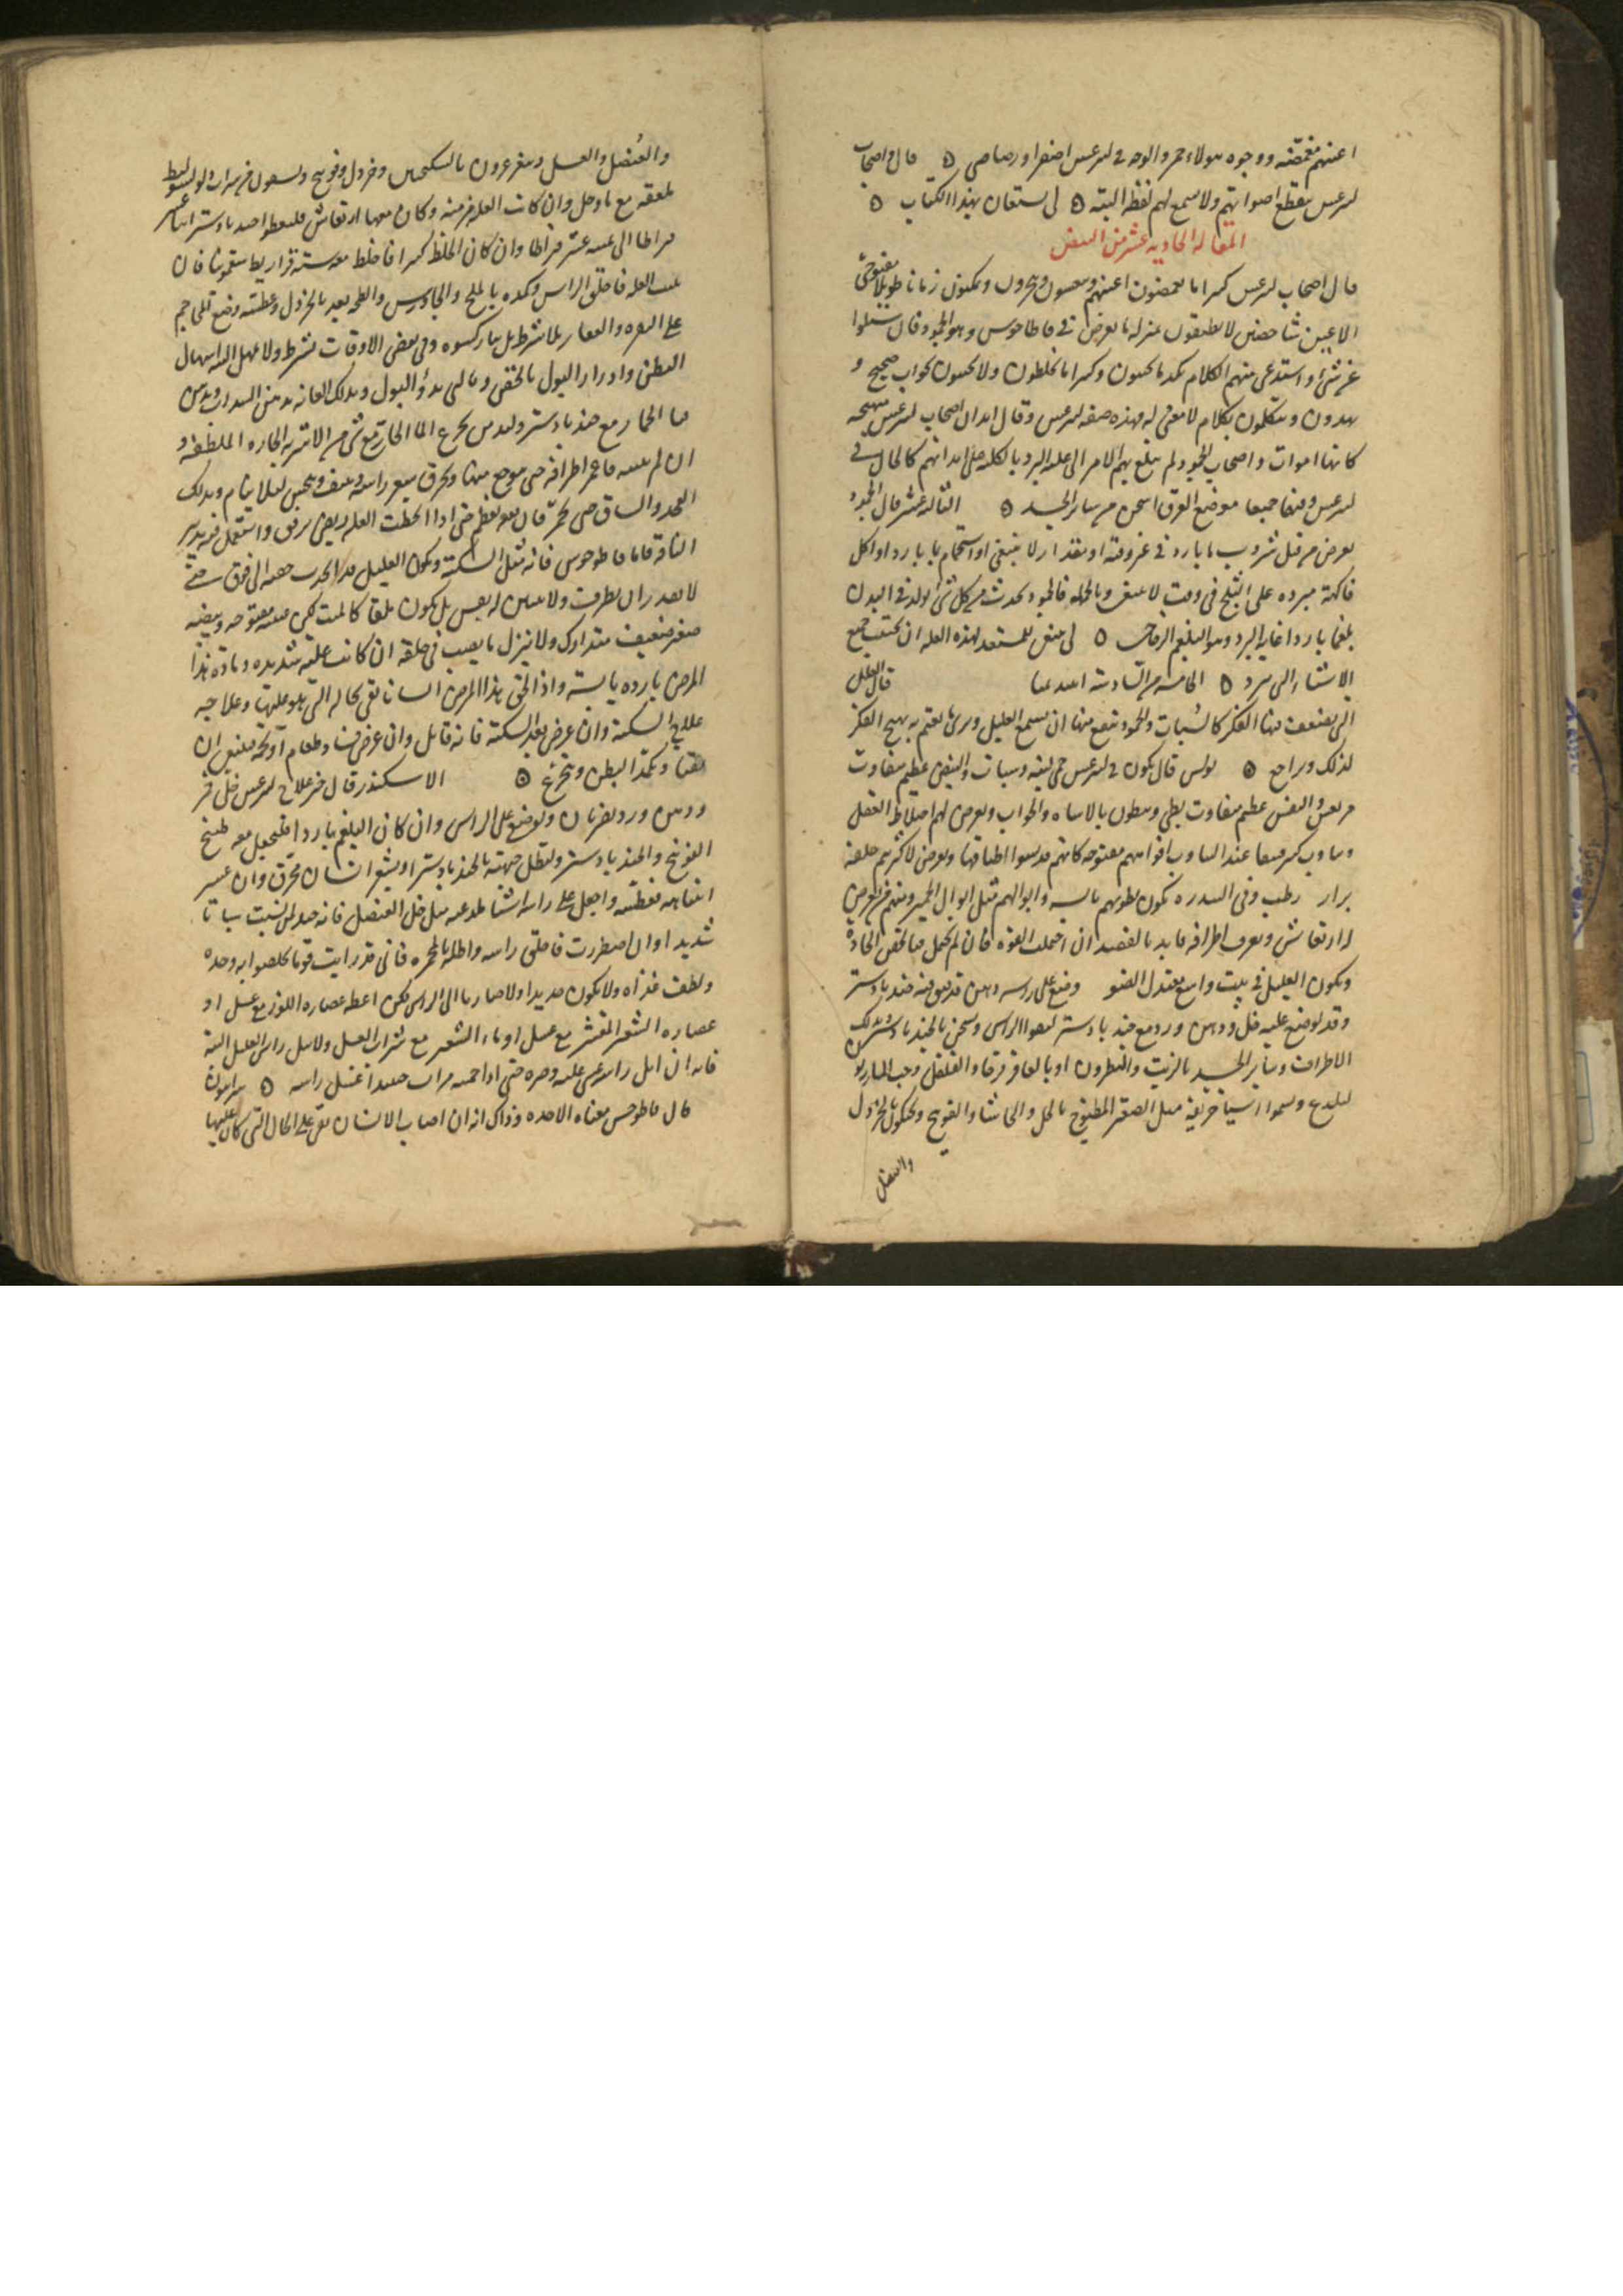 اعينهم مغمضة ووجوه هولاء حمر والوجه في ليرغس اصفر او رصاصي ٥ قال واصحاب
ليرغس ينقطع اصواتهم ولا يسمع لهم لفظ البته ٥ لي ستعان بهذا الكتاب ٥
المقاله الحاديه عشر من النبض
قال اصحاب ليرغس كثيرا ما يغمضون اعينهم وينعسون ويمكثون زمانا طويلا مفتوحي
الاعين شاخصين لا يطبقون بمنزله ما يعرض في قاطاخوس وهو الجمود فان سئلوا
عن شيء او استدعي منهم الكلام بكد ما يجيبون وكثيرا ما يخلطون ولا يجيبون بجواب صحيح و
يهذون ويتكلمون بكلام لا معنى له فهذه صفه ليرغس وقال ابدان اصحاب ليرغس متهيجه
كانها اموات واصحاب الجمود لم يبلغ بهم الامر الى غلبه البرد بالكليه على ابدانهم كالحال في
ليرغس وفيهما جميعا موضع العرق اسخن من ساير الجسد ٥ الثالثه عشر قال الجمود
يعرض من قبل شروب ماء بارد في غير وقته او بمقدار لا ينبغي او استحمام بماء بارد او اكل
فاكهة مبرده على الثلج في وقت لا ينبغي وبالجمله فالجمود يحدث من كل شيء يولد في البدن
بلغما باردا غايه البرد وهو البلغم الزجاجي ٥ لي ينبغي للمستعد لهذه العله ان يجتنب جميع
الاشياء التي تبرد ٥ الخامسه من السادسة ابيديميا قال العلل
التي يضعف فيها الفكر كالسبات والجمود ينفع منها ان يسمع العليل ويرى ما يغتم به يهيج الفكر
لذلك ويراجع ٥ بولس قال يكون في ليرغس حمى لينه وسبات والنبض عظيم متفاوت
مرتعش والنفس عظيم متفاوت بطي ويبطون بالانتباه والجواب ويعرض لهم اختلاط العقل
وتثاوب كثير وينقا عند التثاوب افواههم مفتوحه كانهم قد نسوا اطباقها ويعرض لاكثرهم خلفه
براز رطب وفي الندره يكون بطونهم يابسه وابوالهم مثل ابوال الحمير ومنهم من يعرض
له ارتعاش وبعرق اطرافه فابدء بالفصد ان احتملت القوه فان لم تحتمل فبالحقن الحادة
ويكون العليل في بيت واسع معتدل الضو وضع على راسه دهن قد فتق فيه جندبادستر
وقد يوضع عليه خل ودهن ورد مع جندبادستر ليقوا الراس ويسخن بالجندبادستر وتدلك
الاطراف وساير الجسد بالزيت والنطرون او بالعاقرقرحا والفلفل وحب المازريون
ليلدع ويشموا اشياء حريفه مثل الصعتر المطبوخ بالخل والحاشا والفوتنج ويحنكون بالخردل
والعنصل
والعنصل والعسل ويتغرغرون بالسكنجبين وخردل وفوتنج ويسقون من شراب ولو ايسوليط
ملعقه مع ماء وخل وان كانت العله مزمنه وكان معها ارتعاش فليعطوا جندبادستر اثنا عشر
قيراطا الى خمسه عشر قيراطا وان كان الخلط كثيرا فاخلط معه ستة قراريط سقمونيا فان
بقيت العله فاحلق الراس وكمده بالملح والجاورس والطخ بعد بالخردل وعطسه وضع على حجم
على النقره والفقار بلا شرط بل بنار كسيره وفي بعض الاوقات بشرط ولا يهمل البته اسهال
البطن وادرار البول بالحقن وما يدر البول وبدلك العانه بدهن السداب وبدهن
قثاء الحمار مع جندبادستر وليدمن تجرع الماء الحار مع شيء من الاشربه الحاره الملطفه و
ان لم ينتبه فاغمز اطرافه حتى يوجع منها وتحرق شعر راسه وينتف ويحبس لئلا ينام وبدلك
الفخذ والساق حتى يحمر فان نفعه عظيم حتى اذا انحطت العله ويحيى برفق واستعمل فيه تدبير
الناقه فاما قاطوخوس فانه مثل السكتة ويكون العليل قد انجذبت جفنه الى فوق حتى
لا يقدر ان يطرف ولا يتبين له نفس بل يكون ملقا كالميت لكن عينه مفتوحه ونبضه
صغير ضعيف متدارك ولا ينزل ما يصب في حلقه ان كانت علته شديده ومادة هذا
المرض بارده يابسة واذا لحق هذا المرض انسانا بقي بحاله التي هو عليها وعلاجه
علاج السكتة وان عرض بعد السكتة فانه قاتل وان عرض فساد طعام او تخمة فينبغي ان
يقيا وتكمد البطن ويتمرخ ٥ الاسكندر قال خير علاج ليرغس خل خمر
ودهن ورد يضربان ويوضع على الراس وان كان البلغم باردا فليجعل معه طبيخ
الفوتنج والجندبادستر ولتطل جبهته بالجندبادستر او بشعر انسان محرق وان عسر
انتباهه فعطسه واجعل على راسه اشياء لذعيه مثل خل العنصل فانه جيد لمن يسبت سباتا
شديدا وان اضطررت فاحلق راسه واطله بالمحمره فاني قد رايت قوما تخلصوا به وحده
ولطف غذاه ولا يكون مديدا ولا صاربا الى الراس لكن اعطه عصاره اللوز مع عسل او
عصاره الشعير المقشر مع عسل او ماء الشعير مع شراب العسل ولا تبل راس العليل البته
فانه ان ابل راسه غشي عليه وضره حتى اذا احممه مرات حينئذ اغسل راسه ٥ سرابيون
قال قاطوخس معناه الاخذه وذاك انه ان اصاب الانسان بقي على الحال التي كان عليها